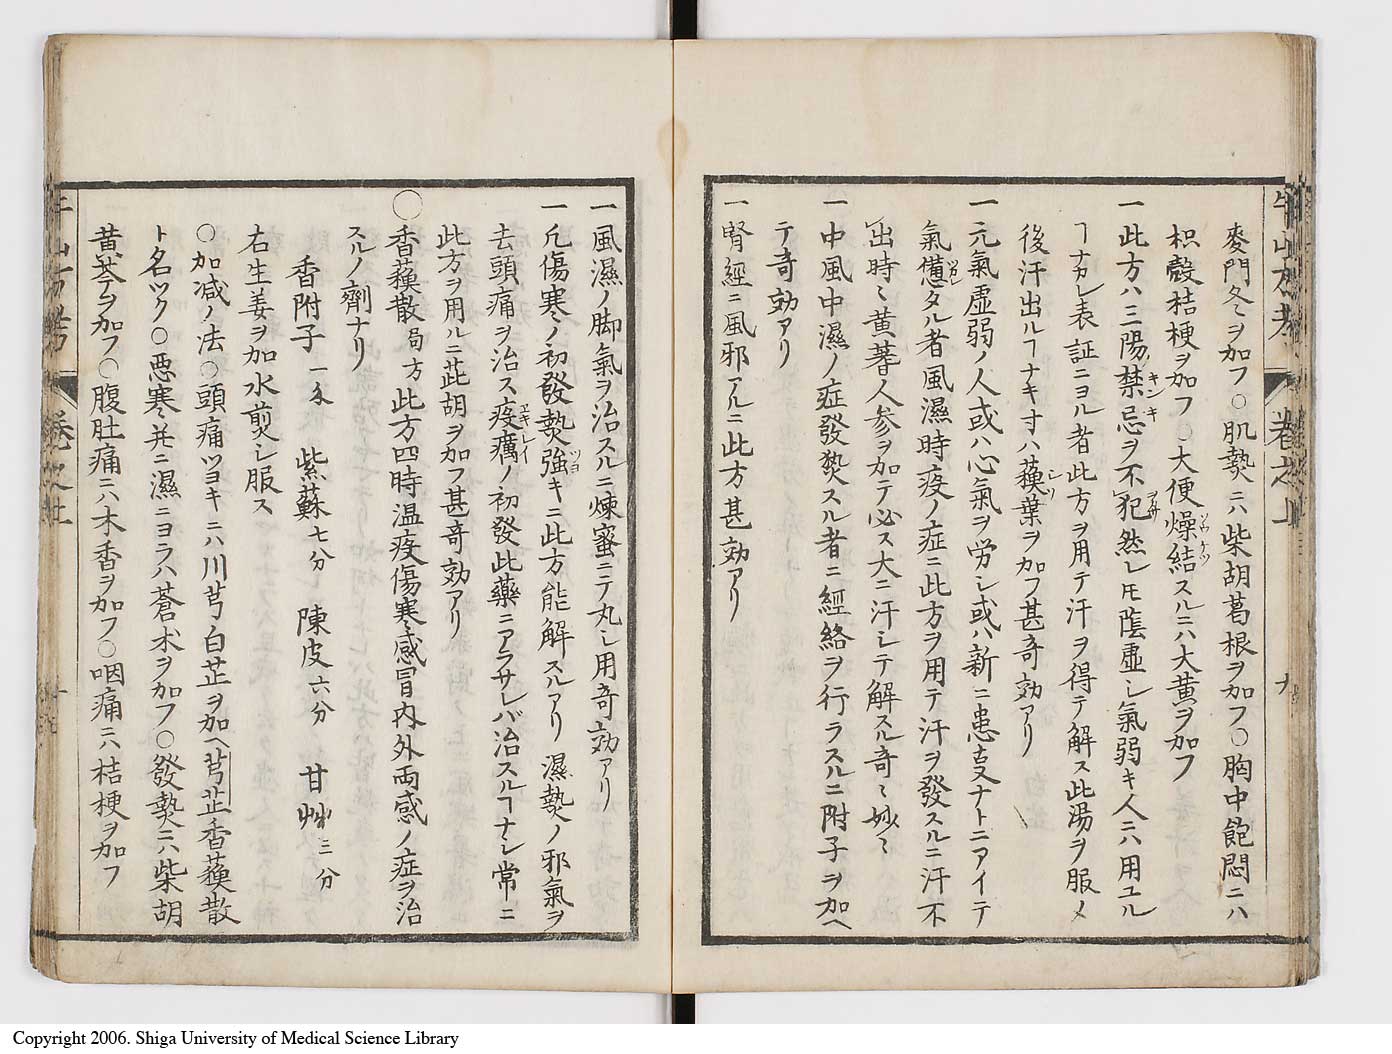 麥門冬ヲ加フ○肌𤍠ニハ柴胡葛根ヲ加フ○胸中飽悶ニハ
枳殼桔梗ヲ加フ○大便燥結スルニハ大黄ヲ加フ
一此方ハ三陽禁忌ヲ不犯然レ𪜈陰虛シ氣弱キ人ニハ用ユル
ヿナカレ表証ニヨル者此方ヲ用テ汗ヲ得テ解ス此湯ヲ服〆
後汗出ルヿナキ寸ハ蘓葉ヲ加フ甚奇効アリ
一元氣虛弱ノ人或ハ心氣ヲ労シ或ハ新ニ患叓ナトニアイテ
氣憊タル者風濕時疫ノ症ニ此方ヲ用テ汗ヲ發スルニ汗不
出時〻黄蓍人参ヲ加テ必ス大ニ汗シテ解スル奇〻妙〻
一中風中濕ノ症發𤍠スル者ニ經絡ヲ行ラスルニ附子ヲ加ヘ
テ奇効アリ
一腎經ニ風邪アルニ此方甚効アリ
牛山方考 卷之上 九
一風濕ノ脚氣ヲ治スルニ煉蜜ニテ丸シ用奇効アリ
一凡傷寒ノ初發𤍠強キニ此方能解スルアリ濕𤍠ノ邪氣ヲ
去頭痛ヲ治ス疫癘ノ初發此藥ニアラサレバ治スルヿナシ常ニ
此方ヲ用ルニ茈胡ヲ加フ甚奇効アリ
○香蘓散局方此方四時温疫傷寒感冒内外両感ノ症ヲ治
スルノ劑ナリ
香附子一匁 紫蘇七分 陳皮六分 甘艸三分
右生姜ヲ加水煎シ服ス
○加减ノ法○頭痛ツヨキニハ川芎白芷ヲ加ヘ芎芷香蘓散
ト名ツク○悪寒并ニ濕ニヨラハ蒼朮ヲ加フ○發𤍠ニハ柴胡
黄芩ヲ加フ○腹肚痛ニハ木香ヲ加フ○咽痛ニハ桔梗ヲ加フ
牛山方考 卷之上 十
Copyright 2006. Shiga University of Medical Science Library